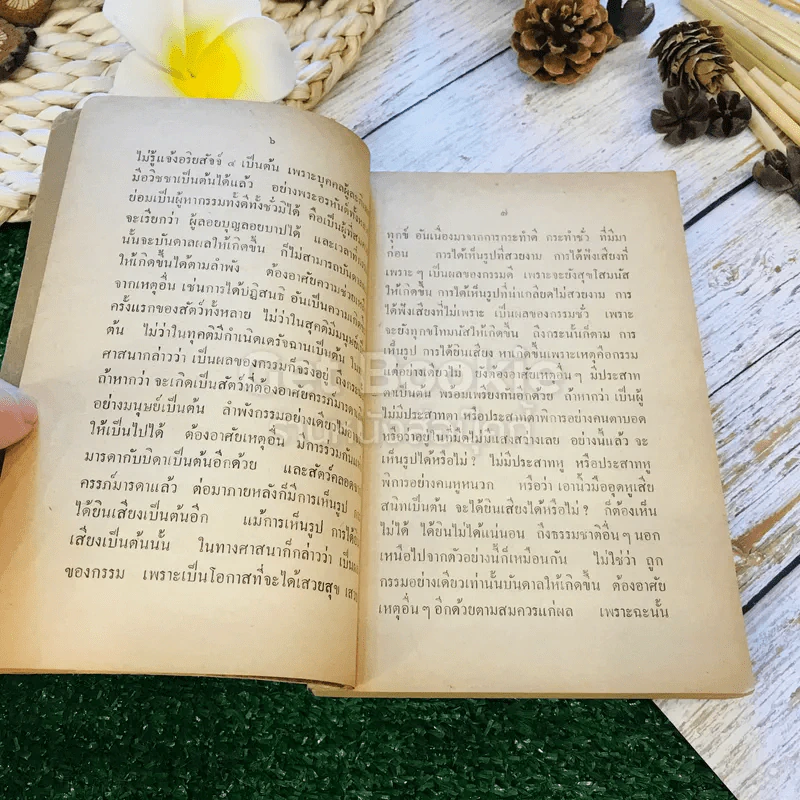 ๖
ไม่รู้แจ้งอริยสัจจ์ ๔ เป็นต้น เพราะบุคคลผู้ละกิเลส
มีอวิชชาเป็นต้นได้แล้ว อย่างพระอรหันต์ทั้งหลาย
ย่อมเป็นผู้หากรรมทั้งดีทั้งชั่วมิได้ คือเป็นผู้ที่สมควร
จะเรียกว่า ผู้ลอยบุญลอยบาปได้ และเวลาที่
นั้นจะบันดาลผลให้เกิดขึ้น ก็ไม่สามารถบันดาล
ให้เกิดขึ้นได้ตามลำพัง ต้องอาศัยความช่วยเหลือ
จากเหตุอื่น เช่นการได้ปฏิสนธิ อันเป็นความเกิด
ครั้งแรกของสัตว์ทั้งหลาย ไม่ว่าในสุคติมีมนุษย์เป็น
ต้น ไม่ว่าในทุคติมีกำเนิดเดรัจฉานเป็นต้น
ศาสนากล่าวว่า เป็นผลของกรรมก็จริงอยู่
ถ้าหากว่า จะเกิดเป็นสัตว์ที่ต้องอาศัยครรภ์มารดา
อย่างมนุษย์เป็นต้น ลำพังกรรมอย่างเดียว
ให้เป็นไปได้ ต้องอาศัยเหตุอื่น มีการร่วมกัน
มารดากับบิดาเป็นต้นอีกด้วย และสัตว์คลอด
ครรภ์มารดาแล้ว ต่อมาภายหลังก็มีการเห็นรูป
ได้ยินเสียงเป็นต้นอีก แม้การเห็นรูป การได้ยิน
เสียงเป็นต้นนั้น ในทางศาสนาก็กล่าวว่า เป็นผล
ของกรรม เพราะเป็นโอกาสที่จะได้เสวยสุข เสวย
๗
ทุกข์ อันเนื่องมาจากการกระทำดี กระทำชั่ว ที่มีมา
ก่อน การได้เห็นรูปที่สวยงาม การได้ฟังเสียงที่
เพราะ ๆ เป็นผลของกรรมดี เพราะจะยังสุขโสมนัส
ให้เกิดขึ้น การได้เห็นรูปที่น่าเกลียดไม่สวยงาม การ
ได้ฟังเสียงที่ไม่เพราะ เป็นผลของกรรมชั่ว เพราะ
จะยังทุกขโทมนัสให้เกิดขึ้น ถึงกระนั้นก็ตาม การ
เห็นรูป การได้ยินเสียง หาเกิดขึ้นเพราะเหตุคือกรรม
แต่อย่างเดียวไม่ ยังต้องอาศัยเหตุอื่น ๆ มีประสาท
ตาเป็นต้น พร้อมเพรียงกันอีกด้วย ถ้าหากว่า เป็นผู้
ไม่มีประสาทตา หรือประสาทตาพิการอย่างคนตาบอด
หรือว่าอยู่ในที่มืดไม่มีแสงสว่างเลย อย่างนี้แล้ว จะ
เห็นรูปได้หรือไม่? ไม่มีประสาทหู หรือประสาทหู
พิการอย่างคนหูหนวก หรือว่า เอานิ้วมืออุดหูเสีย
สนิทเป็นต้น จะได้ยินเสียงได้หรือไม่? ก็ต้องเห็น
ไม่ได้ ได้ยินไม่ได้แน่นอน ถึงธรรมชาติอื่น ๆ นอก
เหนือไปจากตัวอย่างนี้ก็เหมือนกัน ไม่ใช่ว่า ถูก
กรรมอย่างเดียวเท่านั้นบันดาลให้เกิดขึ้น ต้องอาศัย
เหตุอื่น ๆ อีกด้วยตามสมควรแก่ผล เพราะฉะนั้น
Get Bookie